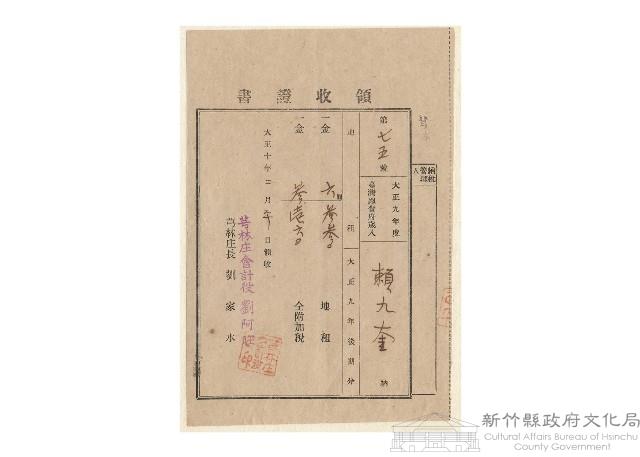 領收證書
第七五號
大正九年度
臺灣總督府歲入
賴九奎 納
地租 大正九年後期分
一金 六 地租
一金 仝附加稅
大正十年 月 日領收
芎林庄會計役 劉阿
芎林庄長 劉家水
新竹縣政府文化局
Cultural Affairs Bureau of Hsinchu
County Government